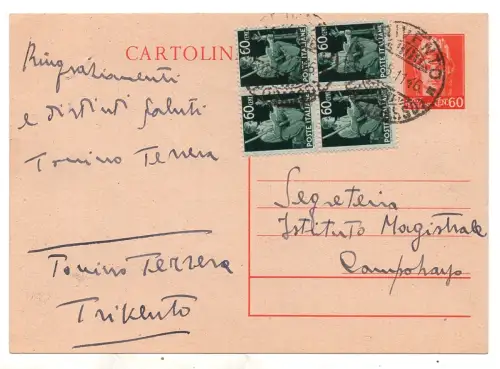 CARTOLIN
Ringraziamenti
e distinti saluti
Tonino Terrera
60 CENT.
POSTE ITALIANE
60 CENT.
POSTE ITALIANE
60 CENT.
POSTE ITALIANE
60 CENT.
POSTE ITALIANE
60
Segreteria
Istituto Magistrale
Campobasso
Tonino Terrera
Trivento